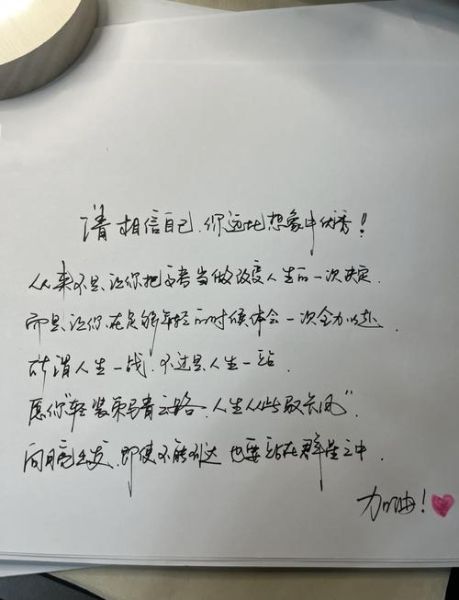 请相信自己，你远比想象中优秀！
从来不是让你把高考当做改变人生的一次决定．
而是让你在足够年轻的时候体会一次全力以赴．
所谓人生一战．不过是人生一站．
愿你“轻装策马青云路．人生从此驭长风”．
向月亮出发，即使不能到达 也要站在群星之中．
加油！